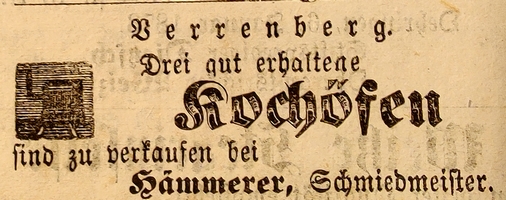 Verrenberg.
Drei gut erhaltene
Kochöfen
sind zu verkaufen bei
Hämmerer, Schmiedmeister.